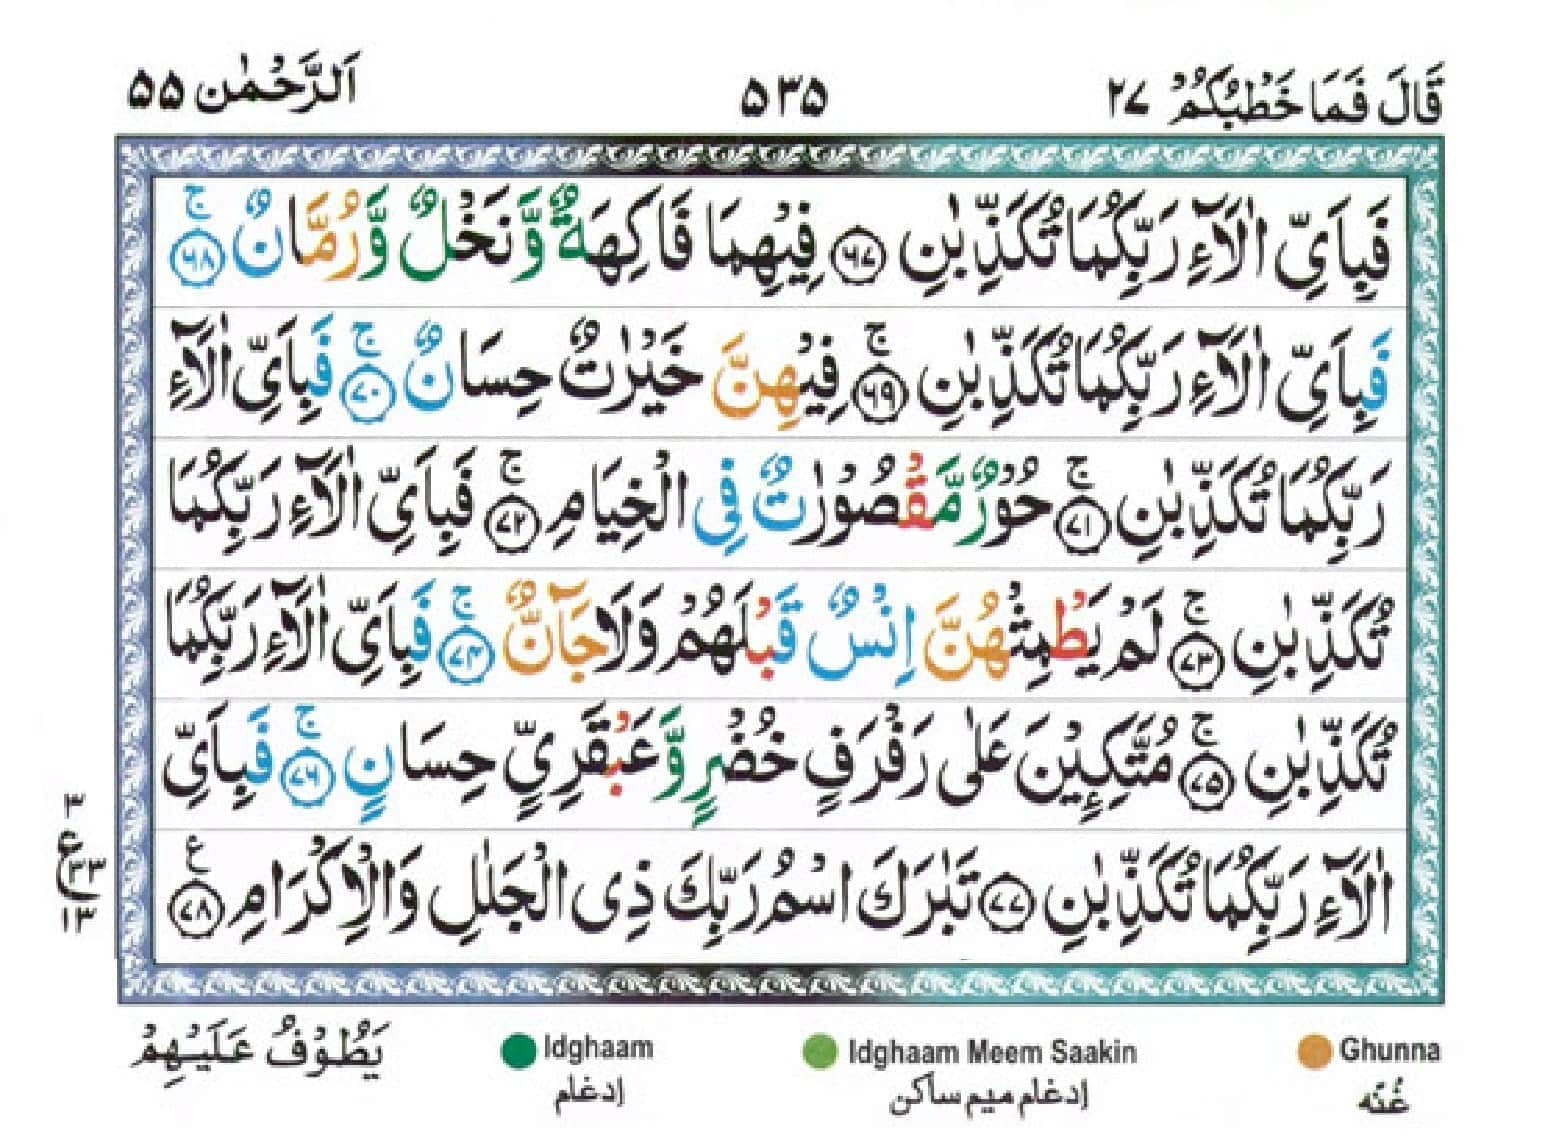 قَالَ فَمَا خَطْبُكُمْ ٢٧ ٥٣٥ اَلرَّحْمٰن ٥٥
فَبِاَیِّ اٰلَآءِ رَبِّكُمَا تُكَذِّبٰنِ ﴿٦٧﴾ فِیْهِمَا فَاكِهَةٌ وَّنَخْلٌ وَّرُمَّانٌ ۚ﴿٦٨﴾
فَبِاَیِّ اٰلَآءِ رَبِّكُمَا تُكَذِّبٰنِ ۚ﴿٦٩﴾ فِیْهِنَّ خَیْرٰتٌ حِسَانٌ ۚ﴿٧٠﴾ فَبِاَیِّ اٰلَآءِ
رَبِّكُمَا تُكَذِّبٰنِ ۚ﴿٧١﴾ حُوْرٌ مَّقْصُوْرٰتٌ فِی الْخِیَامِ ۚ﴿٧٢﴾ فَبِاَیِّ اٰلَآءِ رَبِّكُمَا
تُكَذِّبٰنِ ۚ﴿٧٣﴾ لَمْ یَطْمِثْهُنَّ اِنْسٌ قَبْلَهُمْ وَلَا جَآنٌّ ۚ﴿٧٤﴾ فَبِاَیِّ اٰلَآءِ رَبِّكُمَا
تُكَذِّبٰنِ ۚ﴿٧٥﴾ مُتَّكِـِٕیْنَ عَلٰی رَفْرَفٍ خُضْرٍ وَّعَبْقَرِیٍّ حِسَانٍ ۚ﴿٧٦﴾ فَبِاَیِّ
اٰلَآءِ رَبِّكُمَا تُكَذِّبٰنِ ﴿٧٧﴾ تَبٰرَكَ اسْمُ رَبِّكَ ذِی الْجَلٰلِ وَالْاِكْرَامِ ﴿٧٨﴾ ع
٣
ع ٣٣
١٣
Ghunna Idghaam Meem Saakin Idghaam يَطُوْفُ عَلَيْهِمْ
غُنّه إدغام ميم ساكن إدغام